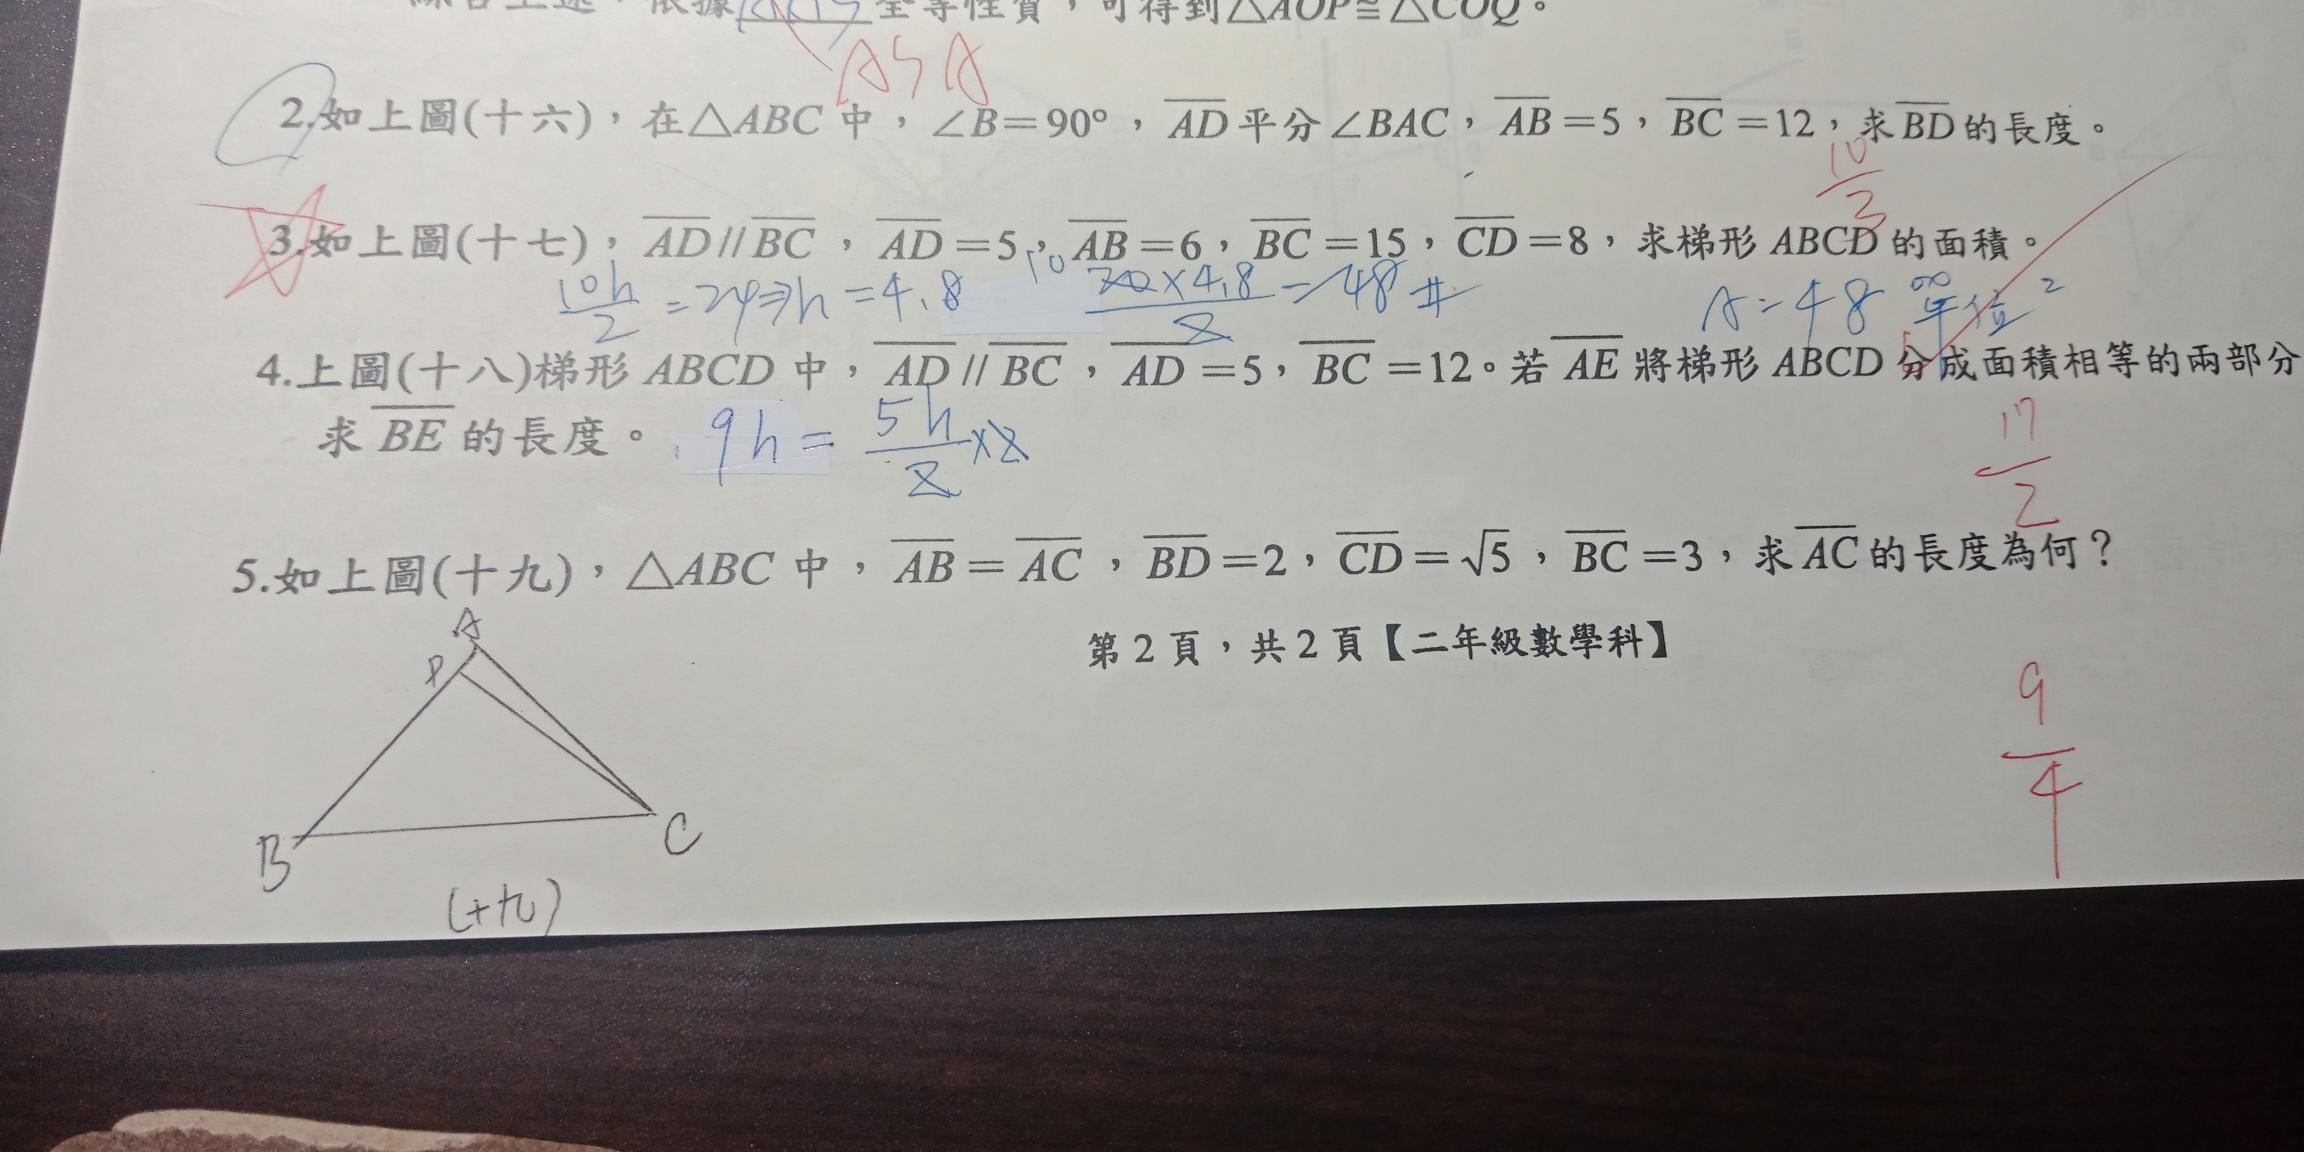 綜合上述，依據 全等性質，可得到△AOP≅△COQ。
ASA
2.如上圖(十六)，在△ABC中，∠B=90°，AD平分∠BAC，AB=5，BC=12，求BD的長度。
10
3
3.如上圖(十七)，AD//BC，AD=5，AB=6，BC=15，CD=8，求梯形ABCD的面積。
10h/2=24⇒h=4.8 10 20×4.8/2=48# A:48平方單位²
4.上圖(十八)梯形ABCD中，AD//BC，AD=5，BC=12。若AE將梯形ABCD分成面積相等的兩部分
求BE的長度。 9h=5h/2×2
17
2
5.如上圖(十九)，△ABC中，AB=AC，BD=2，CD=√5，BC=3，求AC的長度為何？
A
D
B
C
(十九)
第2頁，共2頁【二年級數學科】
9
4